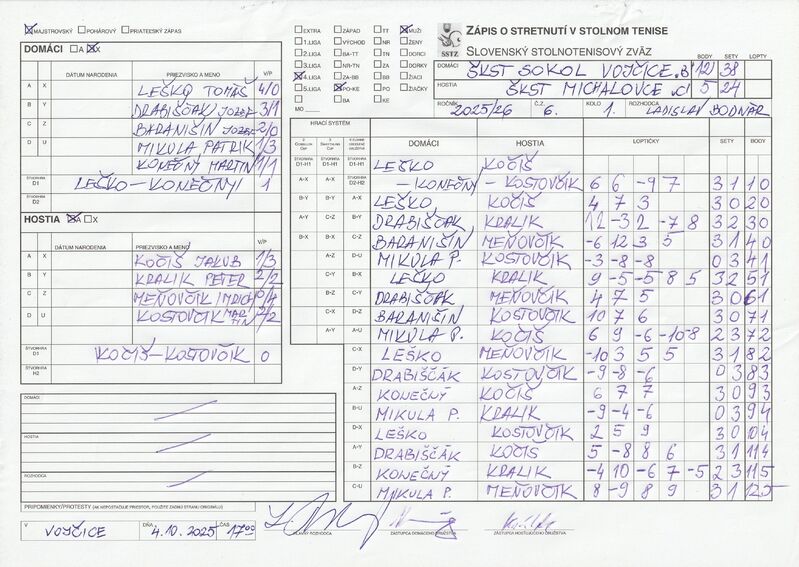 ☒ MAJSTROVSKÝ ☐ POHÁROVÝ ☐ PRIATEĽSKÝ ZÁPAS
DOMÁCI ☐ A ☒ X
DÁTUM NARODENIA PRIEZVISKO A MENO V/P
A X LEŠKO TOMÁŠ 4/0
B Y DRABIŠČÁK JOZEF 3/1
C Z BARANIŠIN JOZEF 2/0
D U MIKULA PATRIK 1/3
KONEČNÝ MARTIN 1/1
ŠTVORHRA D1 LEŠKO-KONEČNÝ 1
ŠTVORHRA D2
HOSTIA ☒ A ☐ X
DÁTUM NARODENIA PRIEZVISKO A MENO V/P
A X KOČIŠ JAKUB 1/3
B Y KRALIK PETER 2/2
C Z MEŇOVČIK IMRICH 0/4
D U KOSTOVČIK MARTIN 2/2
ŠTVORHRA D1 KOČIŠ-KOSTOVČIK 0
ŠTVORHRA H2
DOMÁCI
HOSTIA
ROZHODCA
PRIPOMIENKY/PROTESTY (AK NEPOSTAČUJE PRIESTOR, POUŽITE ZADNÚ STRANU ORIGINÁLU)
V VOJČICE DŇA 4.10.2025 ČAS 17 00
HLAVNÝ ROZHODCA ZÁSTUPCA DOMÁCEHO DRUŽSTVA ZÁSTUPCA HOSŤUJÚCEHO DRUŽSTVA
☐ EXTRA ☐ ZÁPAD ☐ TT ☒ MUŽI
☐ 1.LIGA ☐ VÝCHOD ☐ NR ☐ ŽENY
☐ 2.LIGA ☐ BA ☐ TN ☐ DORCI
☐ 3.LIGA ☐ NR-TN ☐ ZA ☐ DORKY
☒ 4.LIGA ☐ ZA-BB ☐ BB ☐ ŽIACI
☐ 5.LIGA ☒ PO-KE ☐ PO ☐ ŽIAČKY
☐ ☐ BA ☐ KE ☐
MO
SSTZ
ZÁPIS O STRETNUTÍ V STOLNOM TENISE
SLOVENSKÝ STOLNOTENISOVÝ ZVÄZ
BODY SETY LOPTY
DOMÁCI ŠKST SOKOL VOJČICE „B" 12 38
HOSTIA ŠKST MICHALOVCE „C" 5 24
ROČNÍK 2025/26 Č.Z. 6. KOLO 1. ROZHODCA LADISLAV BODNÁR
HRACÍ SYSTÉM DOMÁCI HOSTIA LOPTIČKY SETY BODY
LEŠKO KOČIŠ
-KONEČNÝ -KOSTOVČIK 6 6 -9 7 3 1 1 0
LEŠKO KOČIŠ 4 7 3 3 0 2 0
DRABIŠČAK KRALIK 12 -3 2 -7 8 3 2 3 0
BARANIŠIN MEŇOVČIK -6 12 3 5 3 1 4 0
MIKULA P. KOSTOVČIK -3 -8 -8 0 3 4 1
LEŠKO KRALIK 9 -5 -5 8 5 3 2 5 1
DRABIŠČAK MEŇOVČIK 4 7 5 3 0 6 1
BARANIŠIN KOSTOVČIK 10 7 6 3 0 7 1
MIKULA P. KOČIŠ 6 9 -6 -10 -8 2 3 7 2
LEŠKO MEŇOVČIK -10 3 5 5 3 1 8 2
DRABIŠČÁK KOSTOVČIK -9 -8 -6 0 3 8 3
KONEČNÝ KOČIŠ 6 7 7 3 0 9 3
MIKULA P. KRALIK -9 -4 -6 0 3 9 4
LEŠKO KOSTOVČIK 2 5 9 3 0 10 4
DRABIŠČÁK KOČIŠ 5 -8 8 6 3 1 11 4
KONEČNÝ KRALIK -4 10 -6 7 -5 2 3 11 5
MIKULA P. MEŇOVČIK 8 -9 8 9 3 1 12 5